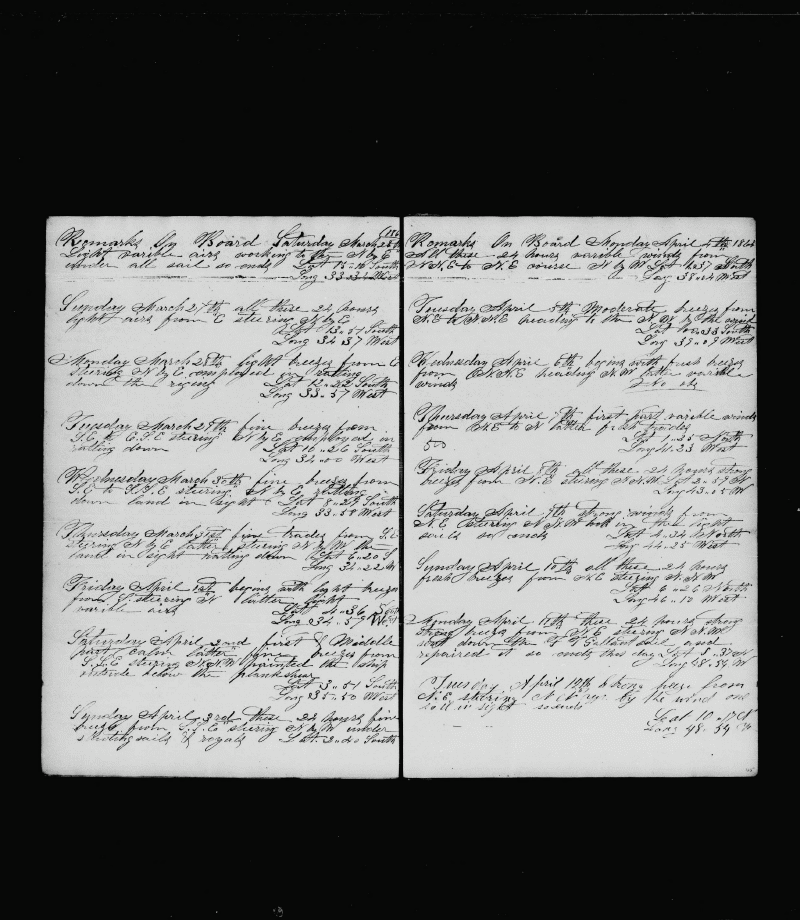 Remarks On Board Saturday March 26th 1864
Light varible airs working to the N by E
under all sail so ends Lat 15-16 South
Long 33-34 West
Sunday March 27th all these 24 hours
light airs from E steering N by E
Lat 13-51 South
Long 34-37 West
Monday March 28th light breezes from E
steering N by E employed in rattling
down the rigging Lat 12-22 South
Long 33-57 West
Tuesday March 29th fine breezes from
S.E. to E.S.E steering N by E employed in
ratling down Lat 10-26 South
Long 34-00 West
Wednesday March 30th fine breezes from
S.E to S.S.E steering N by E ratling
down land in sight Lat 8-29 South
Long 33-58 West
Thursday March 31st fine trades from S.E
steering N by E latter steering N by W the
land in sight ratling down Lat 6-20 S
Long 34-22 W
Friday April 1st begins with light breezes
from S. steering N latter light
varible airs Lat 4-36 South
Long 34-57 West
Saturday April 2nd first & Middle
part calm latter fine breezes from
S.S.E steering N.N.W painted the ship
outside below the plankshear
Lat 3-51 South
Long 35-50 West
Sunday April 3rd these 24 hours fine
breeze from S.S.E steering N by W under
studingsails & royals Lat. 2-20 South
Remarks On Board Monday April 4th 1864
All these 24 hours varible winds from
N.N.E to N.E course N by W Lat 1-37 South
Long 38-24 West
Tuesday April 5th Moderate breezes from
N.E to N.N.E heading to the N.W by the wind
Lat 00-33 South
Long 39-09 West
Wednesday April 6th begins with fresh breezes
from N.N.E heading N.W latter varible
winds No obs
Thursday April 7th first part varible winds
from N.E to N latter fresh trades
500 Lat 1-25 North
Long 41-23 West
Friday April 8th all these 24 hours strong
breezes from N.E steering N.N.W Lat 2-59 N
Long 43-15 W
Saturday April 9th strong winds from
N.E steering N.N.W took in the light
sails so ends Lat 4-34 North
Long 44-25 West
Sunday April 10th all these 24 hours
fresh breezes from N.E steering N.N.W
Lat 6-26 North
Long 46-10 West
Monday April 11th these 24 hours strong
strong breezes from N.E steering N.N.W
sent down the F T Gallant sail and
repaired it so ends this day Lat 8-37 N
Long 48-54 W
Tuesday April 12th strong breeze from
N.E steering N.W by the wind one
sail in sight so ends
Lat 10-17 N
Long 48-59 W